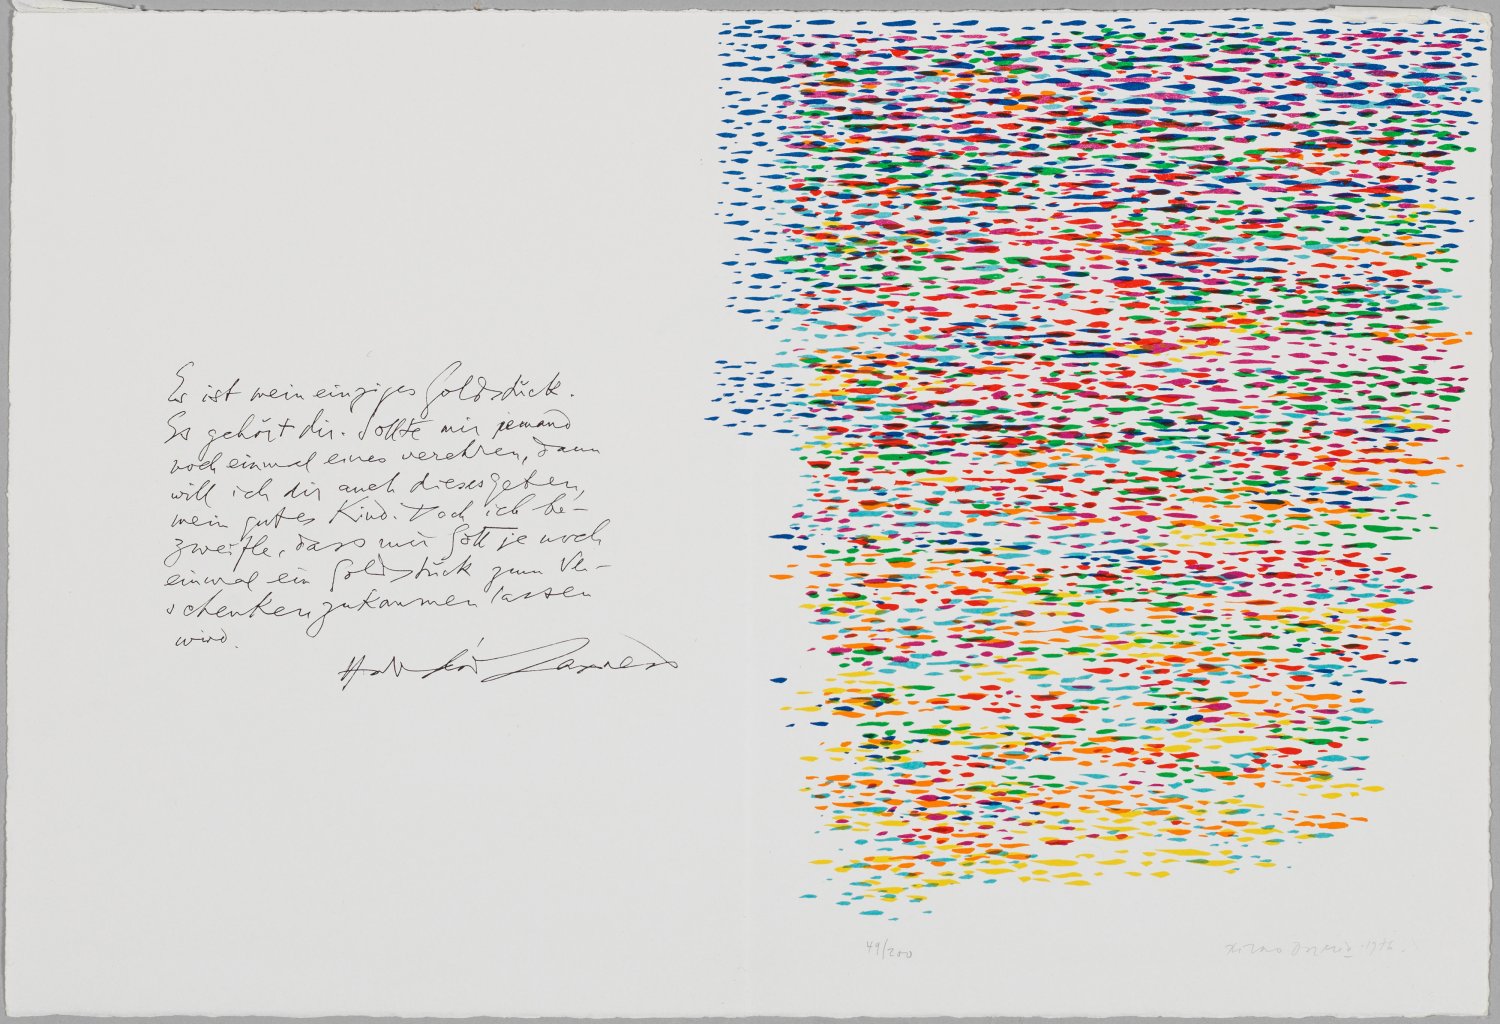 Es ist mein einziges Goldstück.
Es gehört dir. Sollte mir jemand
noch einmal eines verehren, dann
will ich dir auch dieses geben,
mein gutes Kind. Doch ich be-
zweifle, dass mir Gott je noch
einmal ein Goldstück zum Ve-
schenken zukommen lassen
wird.
49/200
1976.